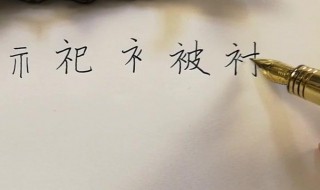 示 祀 衤 被 衬